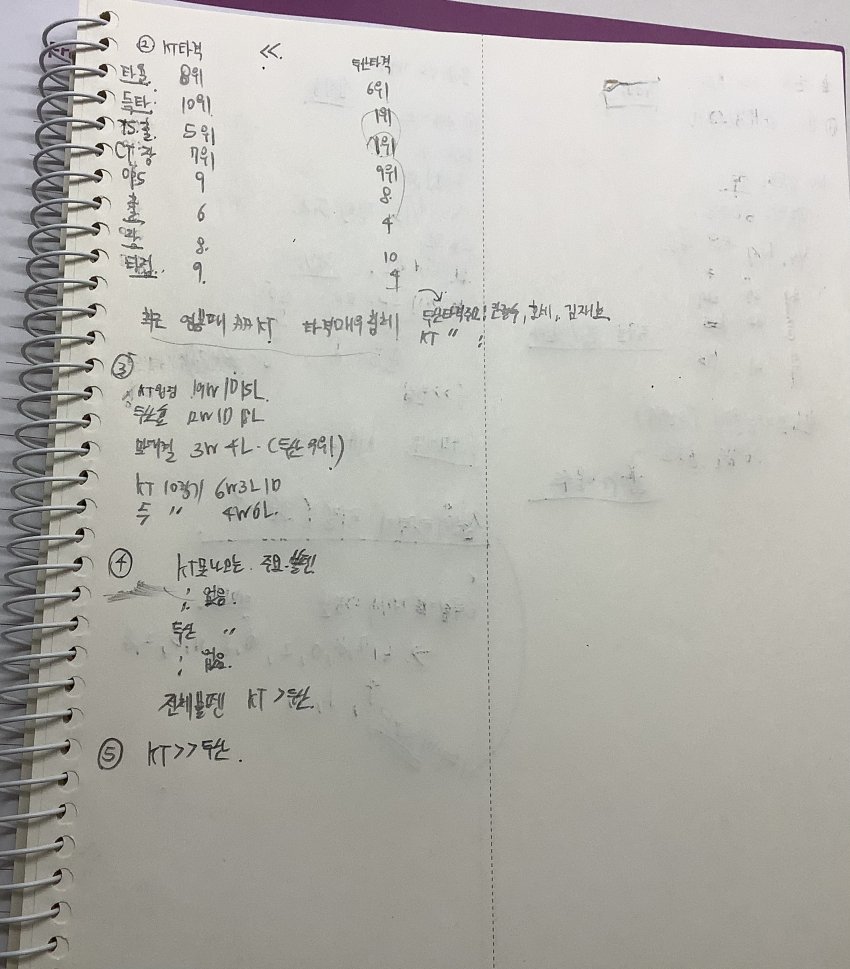 ② KT타격 << 두산타격
타율. 8위 6위
득타. 10위. 1위
TS.출. 5위 1위
CT.장 7위 9위
9 8.
출 6 4
장 8. 10
타점. 9. 4
최근 KT 타격매우침체 두산타격주요: 호세, 김재호
KT 〃 :
③
KT원정 19W 1D 15L
두산홈 12W 1D 18L
맞대결 3W 4L. (두산 9위)
KT 10경기 6W3L1D
두 〃 4W6L.
④ KT못나오는. 주요.불펜
: 없음.
두산 〃
: 없음.
전체불펜 KT > 두산.
⑤ KT>>두산.